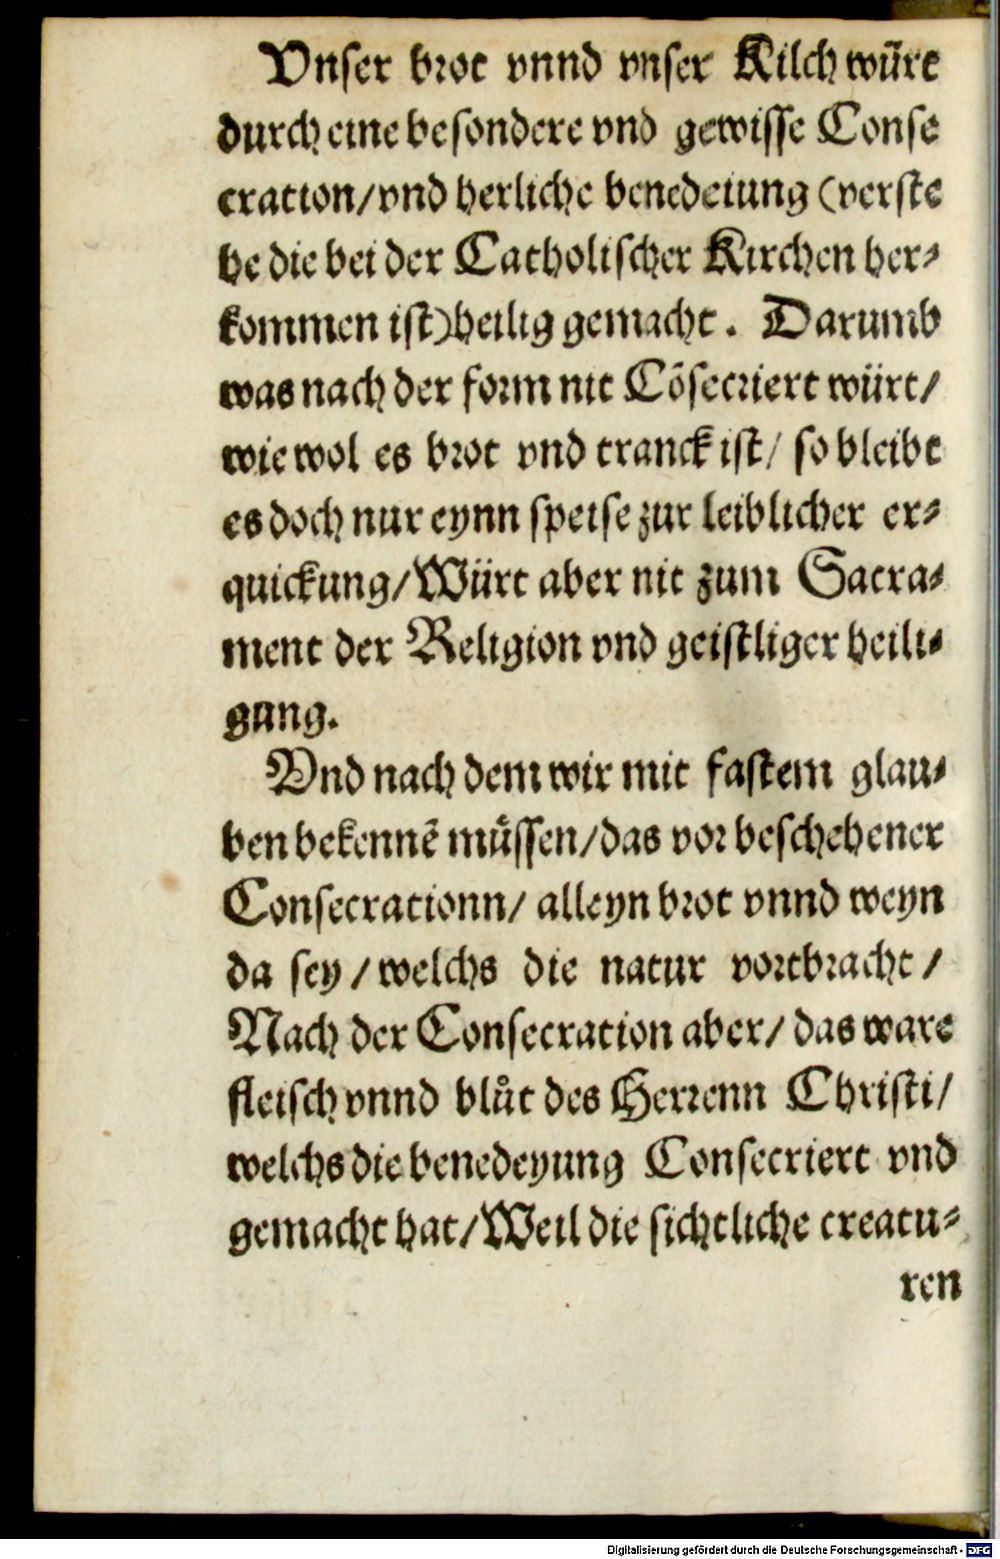 Vnser brot vnnd vnser Kilch wűrt
durch eine besondere vnd gewisse Conse
cration/vnd herliche benedeiung (verste
he die bei der Catholischer Kirchen her⸗
kommen ist)heilig gemacht. Darumb
was nach der form nit Cõsecriert würt/
wie wol es brot vnd tranck ist/ so bleibt
es doch nur eynn speise zur leiblicher er⸗
quickung/Würt aber nit zum Sacra⸗
ment der Religion vnd geistliger heili⸗
gung.
Vnd nach dem wir mit fastem glau⸗
ben bekennẽ můssen/das vor beschehener
Consecrationn/ alleyn brot vnnd weyn
da sey/welchs die natur vortbracht/
Nach der Consecration aber/ das ware
fleisch vnnd blůt des Herrenn Christi/
welchs die benedeyung Consecriert vnd
gemacht hat/Weil die sichtliche creatu⸗
ren
Digitalisierung gefördert durch die Deutsche Forschungsgemeinschaft - DFG